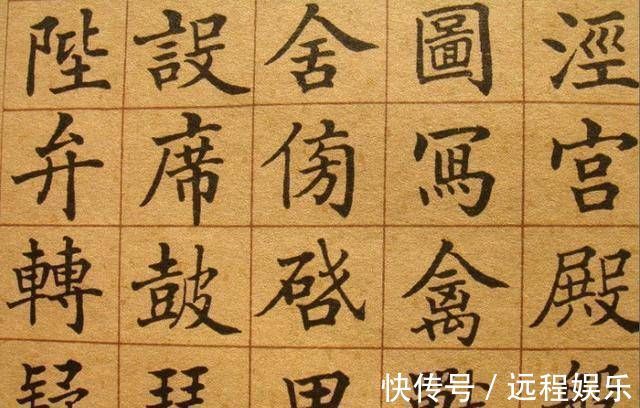 涇宮殿
圖寫禽
舍傍啓
設席鼓
陛弁轉
快传号 / 远程娱乐